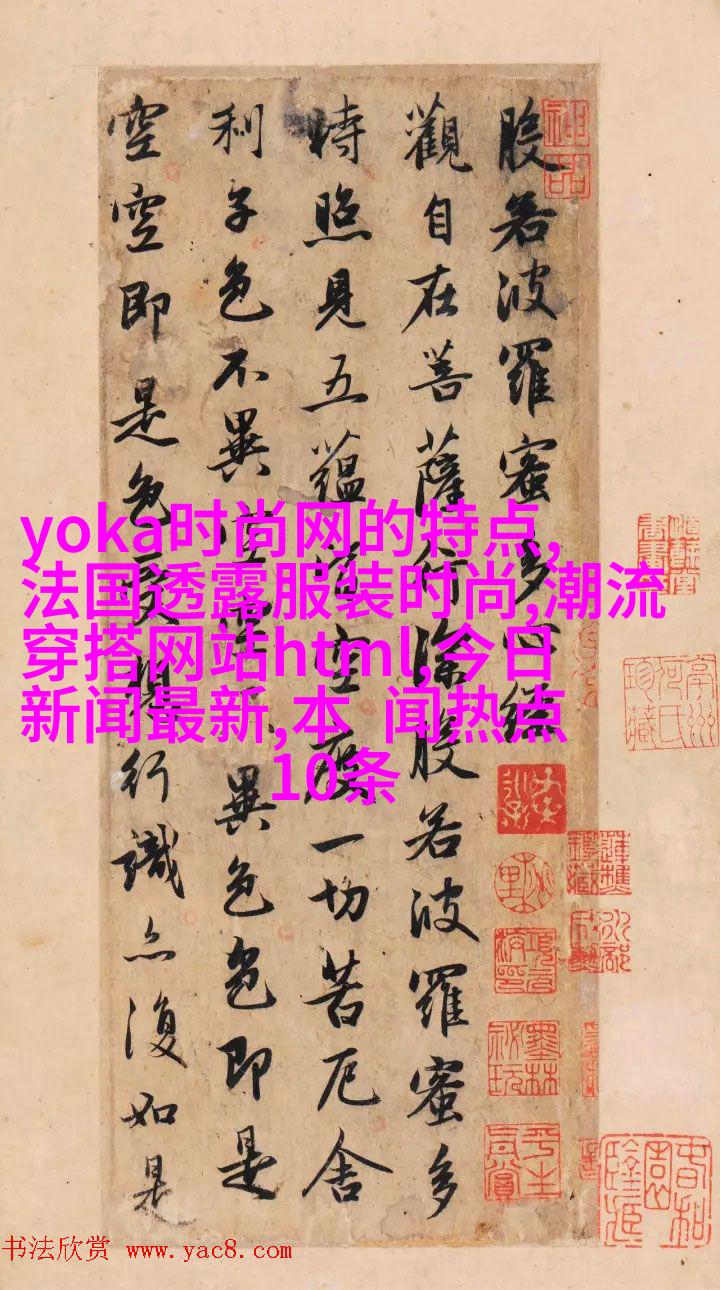 般若波羅蜜多心經
觀自在菩薩行深般若波羅蜜多
時照見五蘊皆空度一切苦厄舍
利子色不異空空不異色色即是
空空即是色受想行識亦復如是
yoka时尚网的特点,
法国透露服装时尚,潮流
穿搭网站html,今日
新闻最新,本 闻热点
10条
神品
墨林
秘玩
平生
真賞
书法欣赏 www.yac8.com